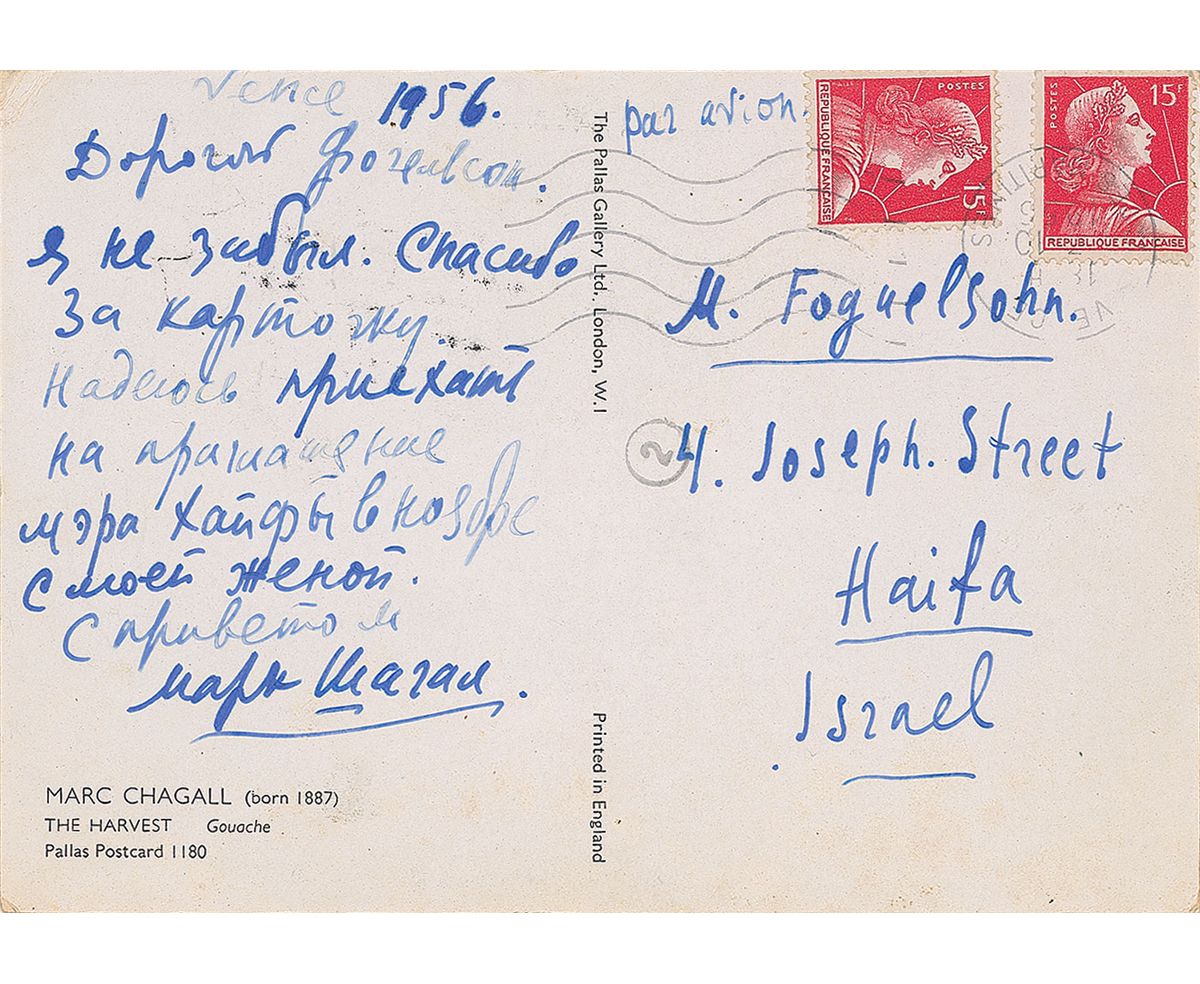 Vence 1956.
Дорогой Фогельсон.
я не забыл. Спасибо
за карточку.
Надеюсь приехать
на приглашение
мэра Хайфы в ноябре
с моей женой.
С приветом
Марк Шагал.
MARC CHAGALL (born 1887)
THE HARVEST Gouache
Pallas Postcard 1180
The Pallas Gallery Ltd., London, W.1
Printed in England
par avion.
POSTES
15F
REPUBLIQUE FRANÇAISE
POSTES
15F
REPUBLIQUE FRANÇAISE
M. Foguelsohn.
2
4. Joseph. Street
Haifa
Israel